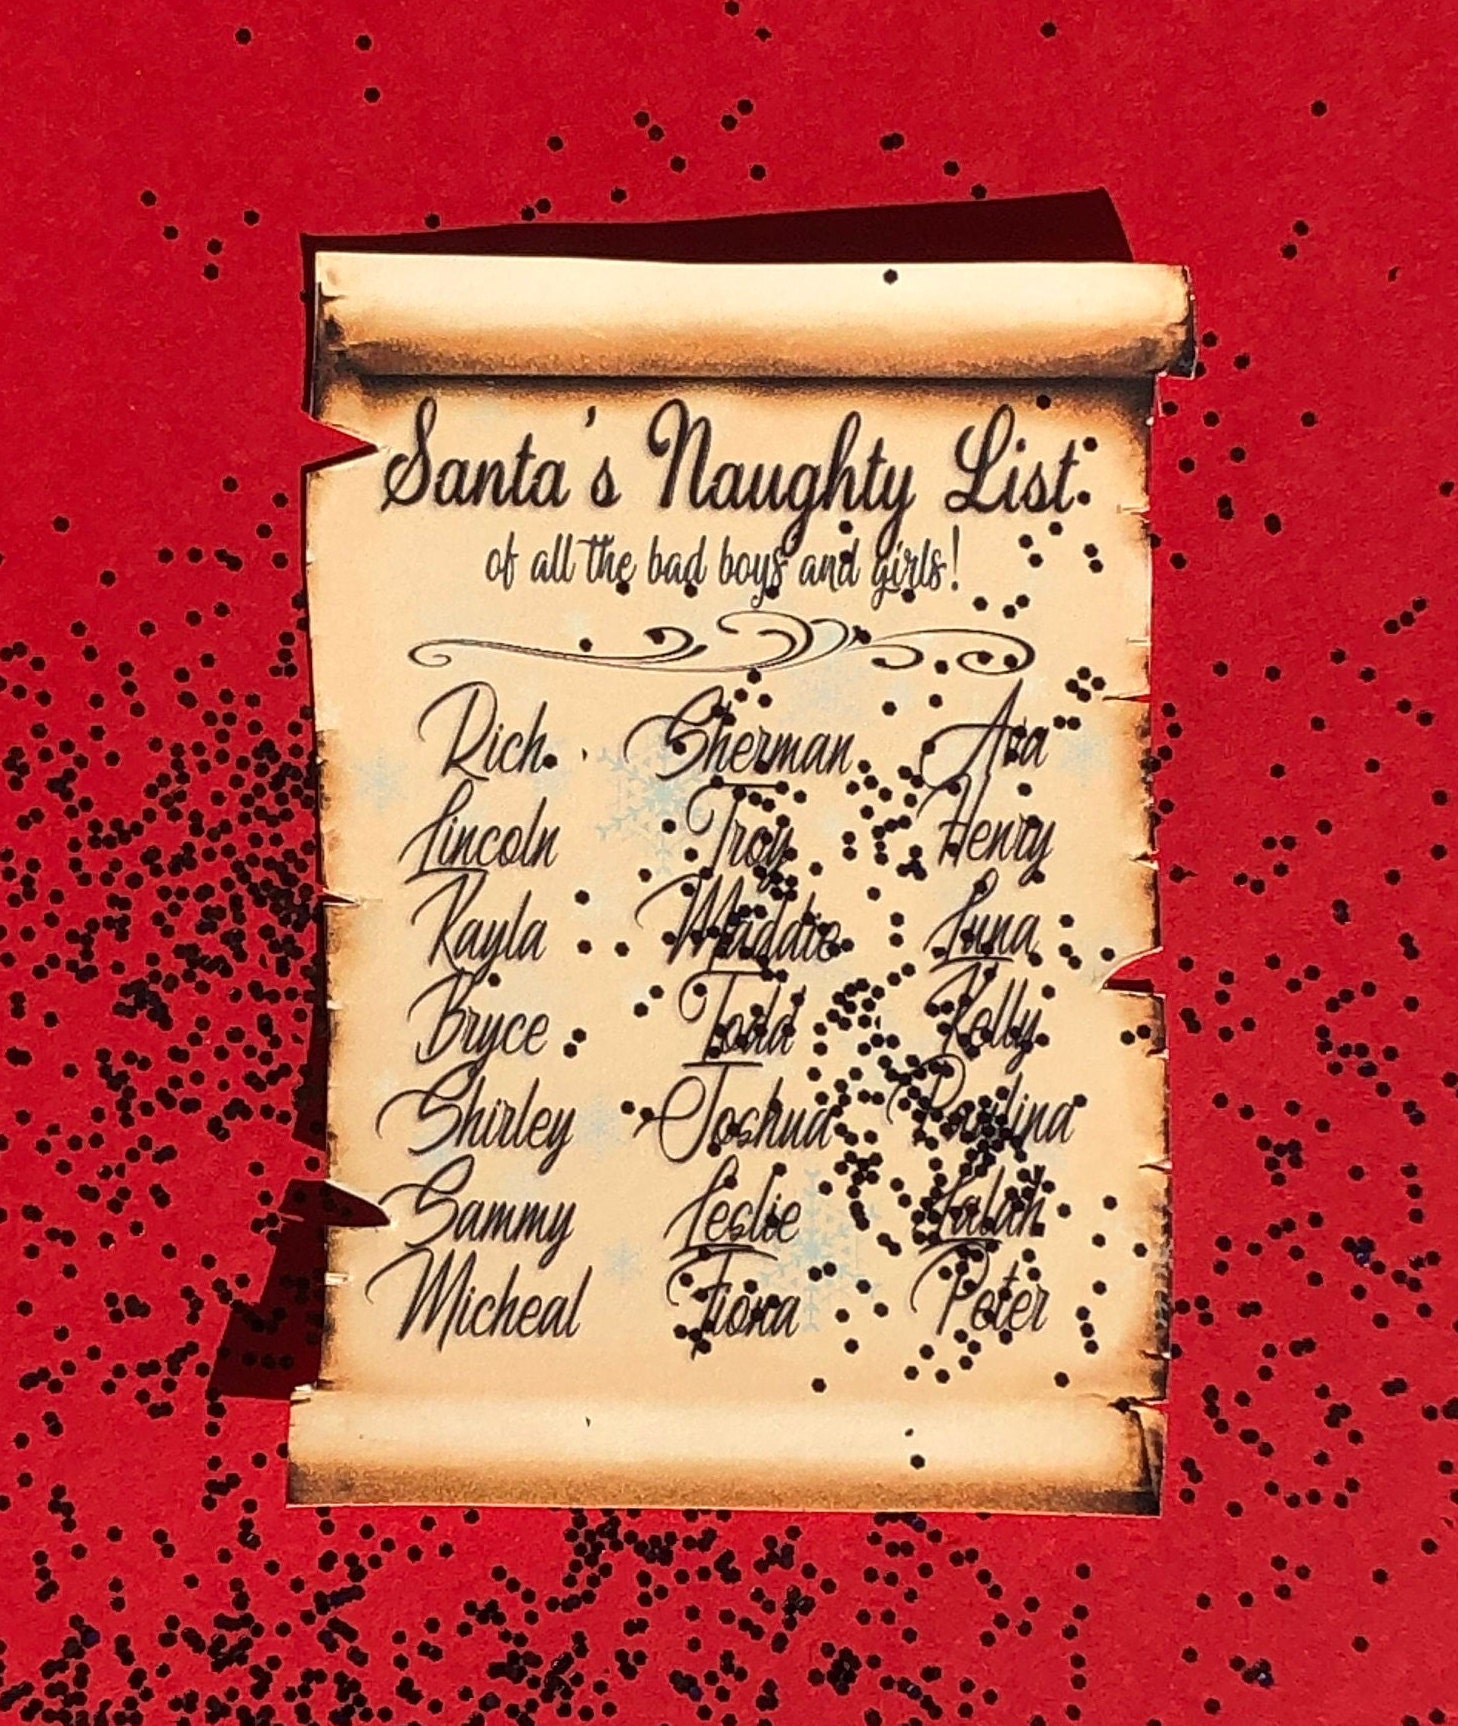 Santa's Naughty List
of all the bad boys and girls!
Rich Sherman Ava
Lincoln Troy Henry
Kayla Maddie Luna
Bryce Todd Kelly
Shirley Joshua Paulina
Sammy Leslie
Micheal Fiona Peter